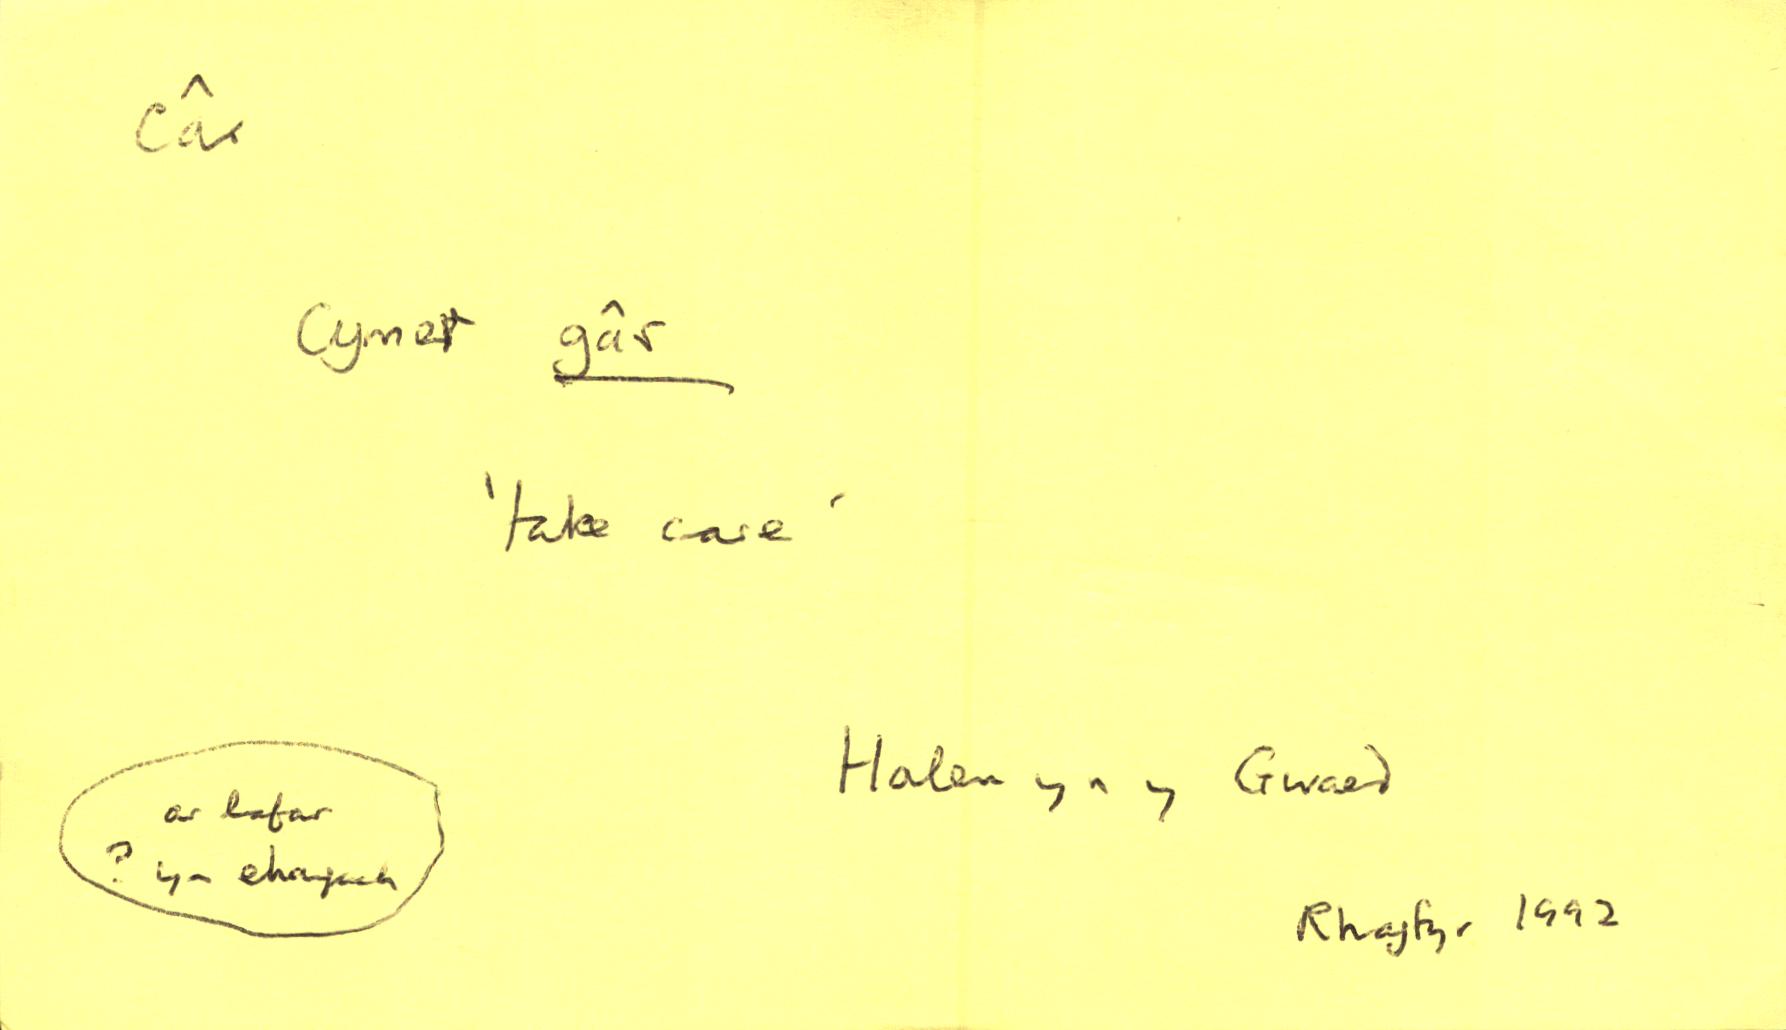 Câr
Cymer gâr
'take care'
Halen yn y Gwaed
Rhagfyr 1992
ar lafar
? yn ehangach